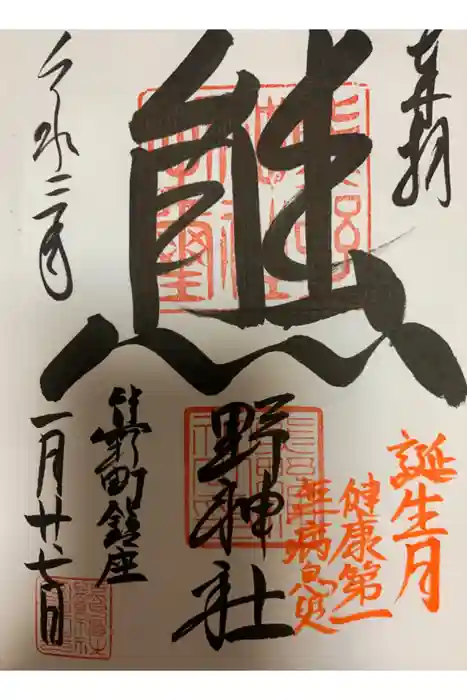 奉拝
熊
野神社
誕生月
健康第一
無病息災
町鎮座
令和三年
一月廿七日